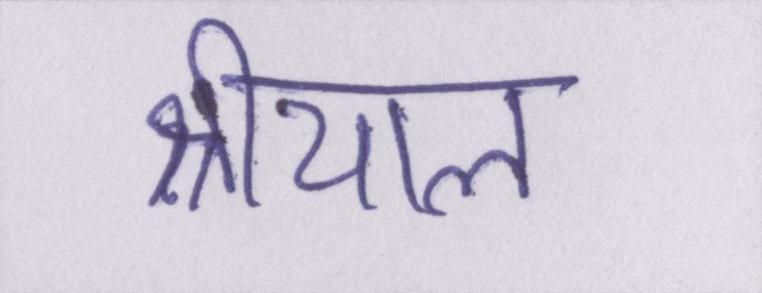 श्रीयाल